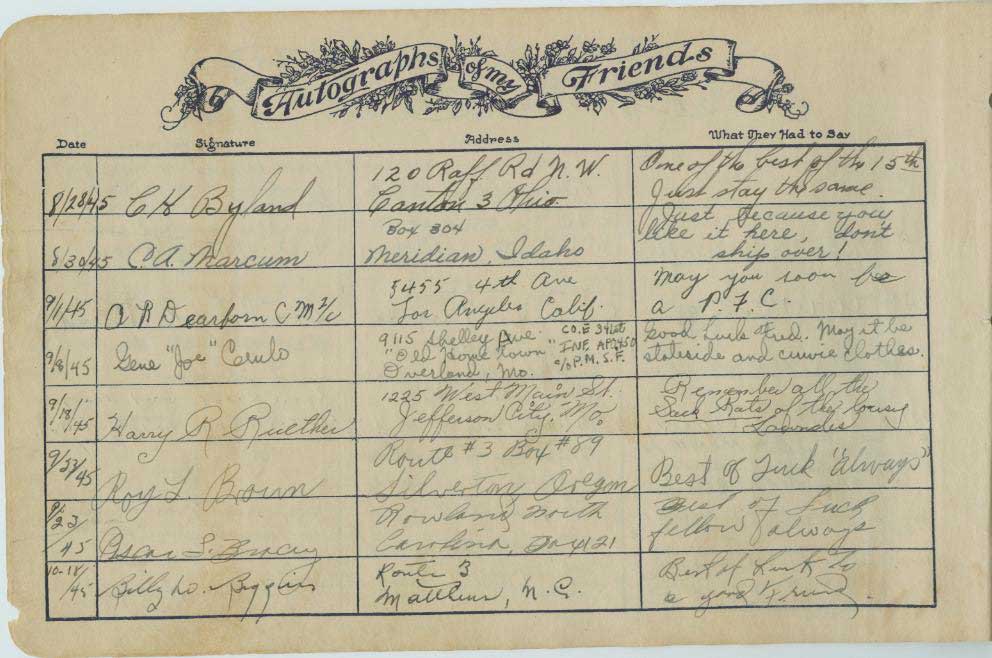 Autographs of my Friends
Date Signature Address What They Had to Say
8/28/45 C K Byland
120 Raff Rd N.W.
Canton 3 Ohio
One of the best of the 15th
Just stay the same.
8/30/45 C.A. Marcum
Box 304
Meridian, Idaho
Just because you
like it here, don't
ship over!
9/1/45 A R Dearborn C M 2/c
5455 4th Ave
Los Angeles Calif.
May you soon be
a P.F.C.
9/8/45 Gene "Joe" Cerulo
9115 Shelley Ave
"Old Home town"
Overland, Mo.
CO.E 341st
INF. APO 450
c/o P.M.S.F.
Good Luck Fred. May it be
stateside and civvie clothes.
9/18/45 Harry R Ruether
1225 West Main St.
Jefferson City, Mo
Remember all the
Sack Rats of the lousy
Lowndes
9/23/45 Roy L. Brown
Route #3 Box #89
Silverton, Oregon
Best of Luck "always"
9/23/45 Oscar L. Bracey
Rowland, North
Carolina, Box 121
Best of Luck
fellow always
10-18/45 Billy W. Biggers
Route 3
Matthews, N.C.
Best of Luck to
a good Friend.